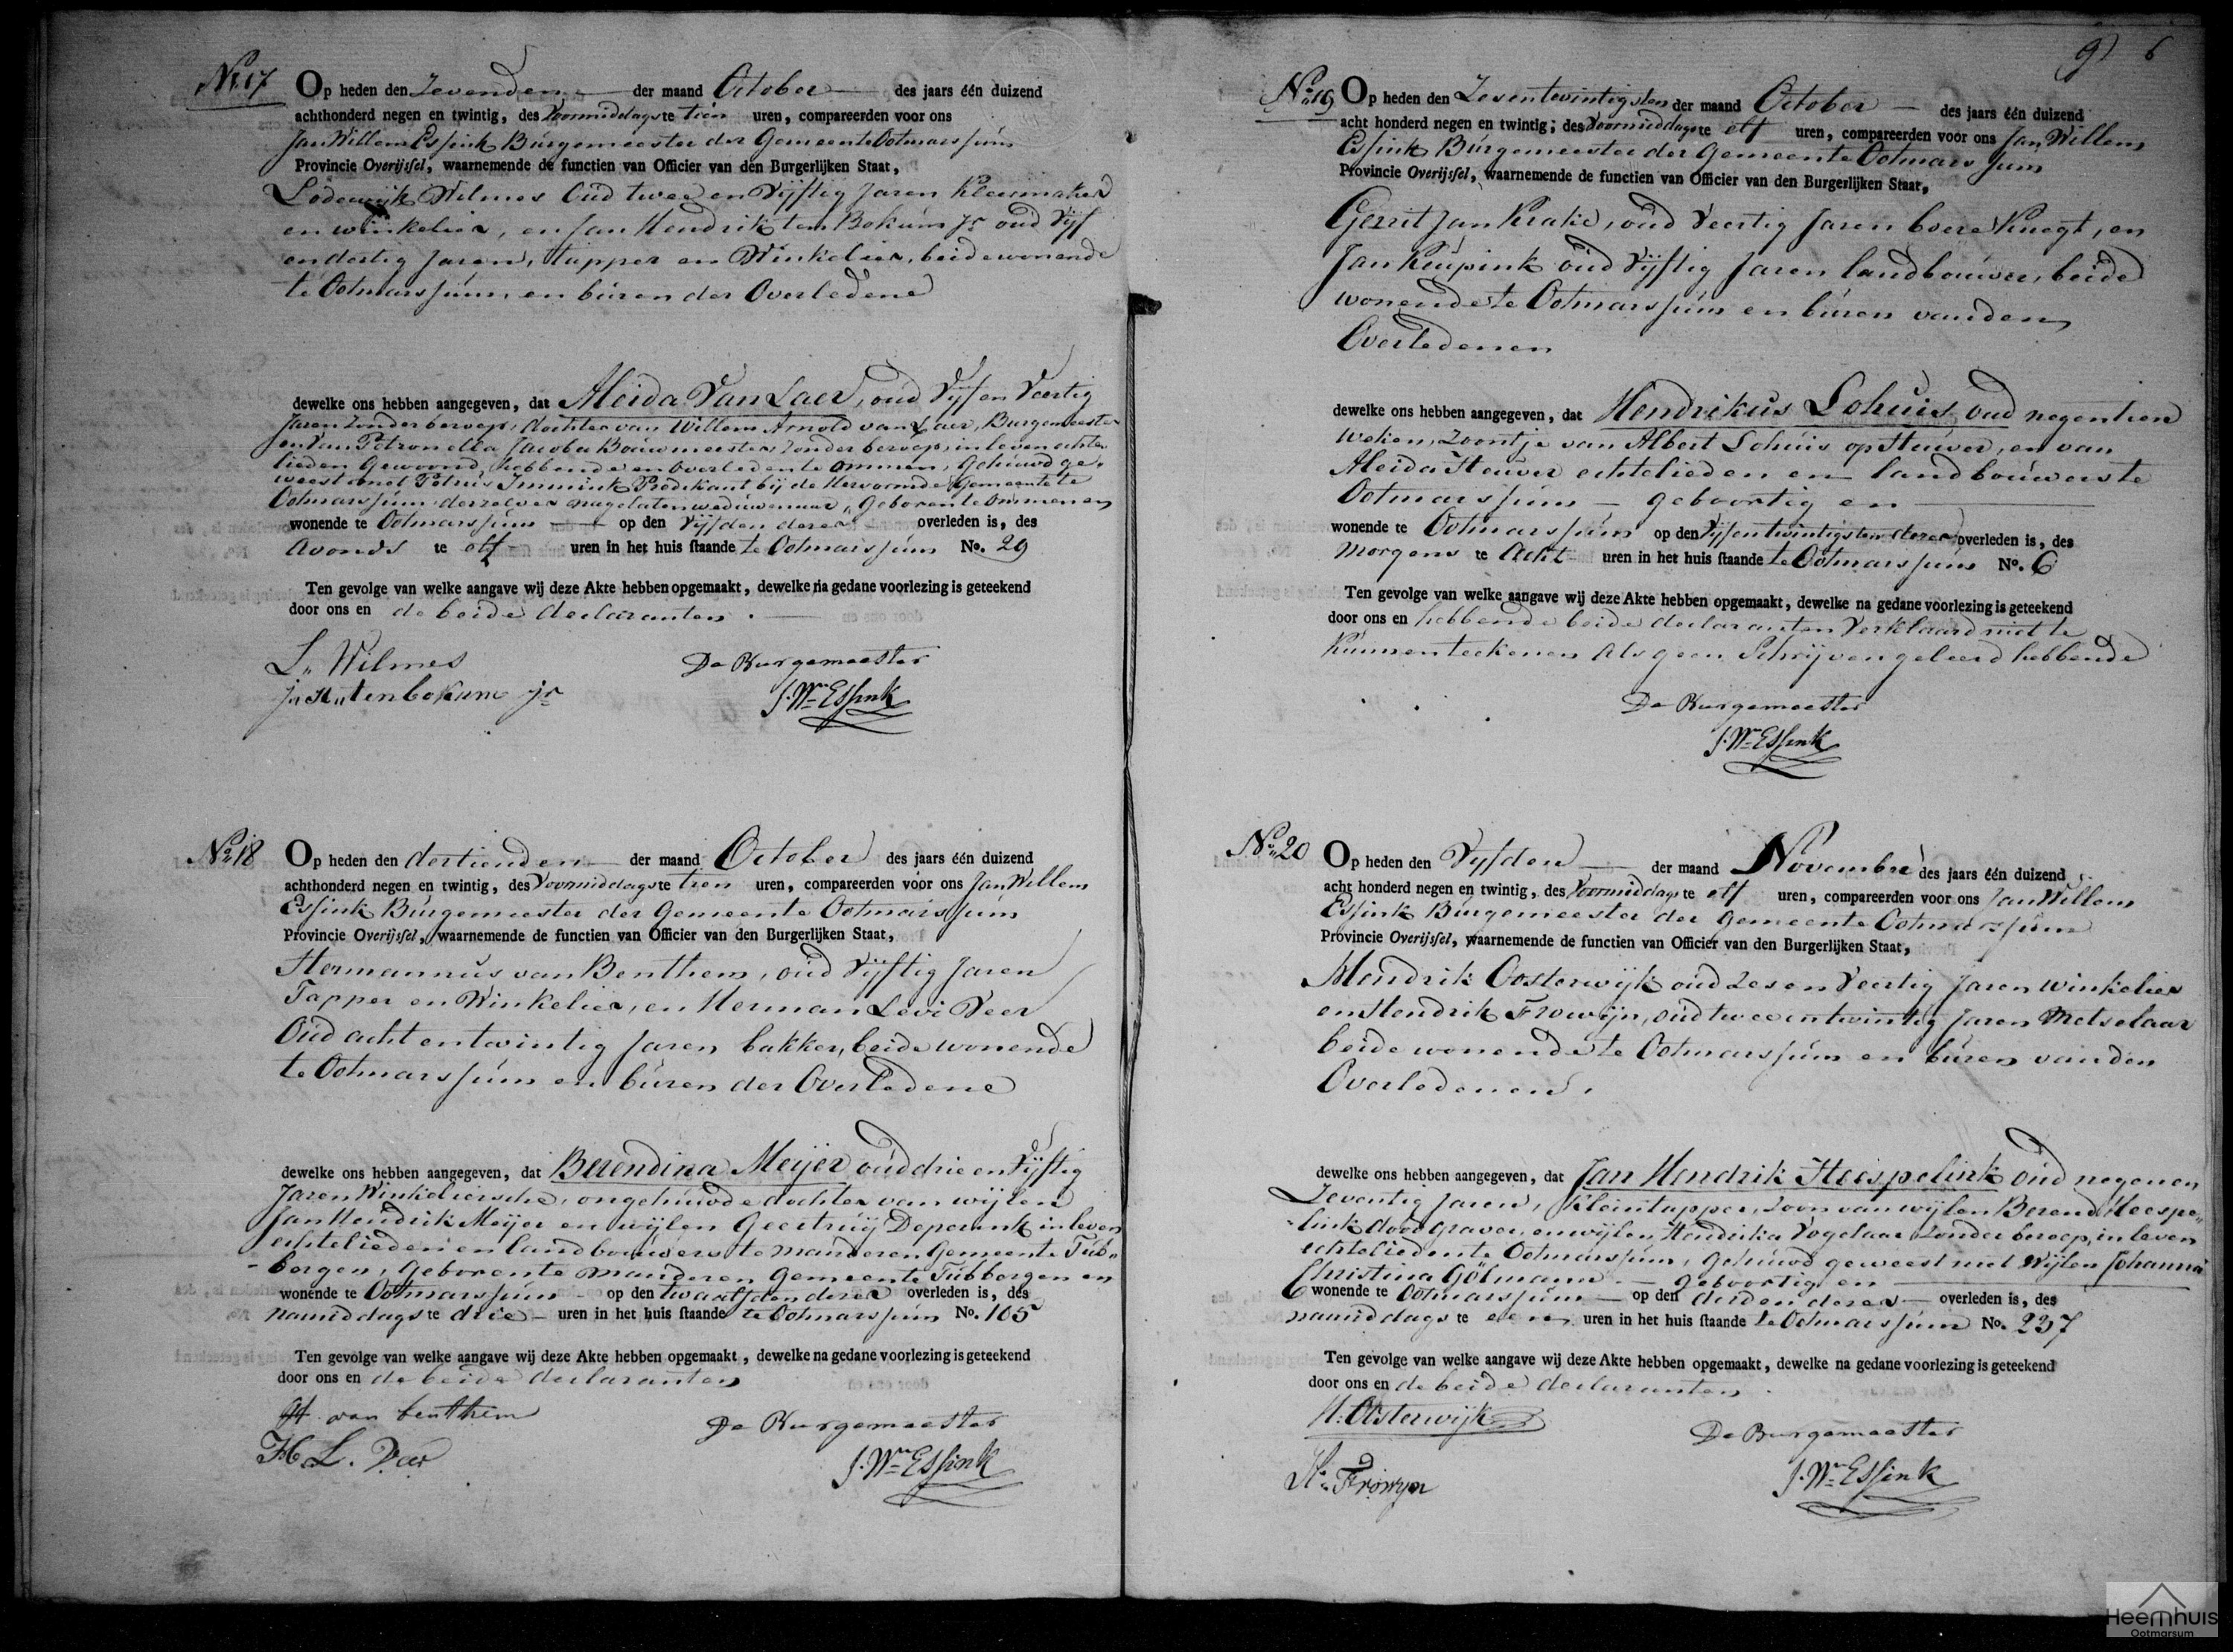 No. 17
Op heden den Zevenden der maand October des jaars één duizend
achthonderd negen en twintig, des Voormiddags te tien uren, compareerden voor ons
Jan Willem Essink Burgemeester der Gemeente Ootmarssum
Provincie Overijssel, waarnemende de functien van Officier van den Burgerlijken Staat,
Lodewijk Wilmes Oud twee en Vijftig Jaren Kleermaker
en winkelier, en Jan Hendrik ten Bokum Jr oud Vijf
en dertig Jaren, tapper en Winkelier, beide wonende
te Ootmarssum, en buren der Overledene
dewelke ons hebben aangegeven, dat Aleida Van Laer, oud Vijf en Veertig
Jaren Zonder beroep, dochter van Willem Arnold van Laer, Burgemeester
en van Petronella Jacoba Bouwmeester, Zonder beroep, in leven echte
lieden Gewoond hebbende en Overleden te Ommen, Gehuwd ge-
weest met Petrus Immink Predikant bij de Hervormde Gemeente te
Ootmarssum derzelver nagelaten weduwenaar, Geboren te Ommen en
wonende te Ootmarssum op den Vijfden dezer overleden is, des
Avonds te elf uren in het huis staande te Ootmarssum No. 29
Ten gevolge van welke aangave wij deze Akte hebben opgemaakt, dewelke na gedane voorlezing is geteekend
door ons en de beide declaranten.
L. Wilmes De Burgemeester
J. H. ten bokum jr J. Wm Essink
No. 18
Op heden den dertienden der maand October des jaars één duizend
achthonderd negen en twintig, des Voormiddags te tien uren, compareerden voor ons Jan Willem
Essink Burgemeester der Gemeente Ootmarssum
Provincie Overijssel, waarnemende de functien van Officier van den Burgerlijken Staat,
Hermannus van Benthem, oud Vijftig Jaren
Tapper en Winkelier, en Herman Levi Veer
Oud acht en twintig Jaren, bakker, beide wonende
te Ootmarssum en buren der Overledene
dewelke ons hebben aangegeven, dat Berendina Meijer oud drie en Vijftig
Jaren Winkeliersche, ongehuwde dochter van wijlen
Jan Hendrik Meijer en wijlen Geertruij Deperink in leven
echtelieden en landbouwers te Manderen Gemeente Tub-
bergen, Geboren te Manderen Gemeente Tubbergen en
wonende te Ootmarssum op den twaalfden dezer overleden is, des
namiddags te drie uren in het huis staande te Ootmarssum No. 105
Ten gevolge van welke aangave wij deze Akte hebben opgemaakt, dewelke na gedane voorlezing is geteekend
door ons en de beide declaranten
H. van benthem De Burgemeester
H. L. Veer J. Wm Essink
No. 19
Op heden den Zesentwintigsten der maand October des jaars één duizend
acht honderd negen en twintig; des Voormiddags te elf uren, compareerden voor ons Jan Willem
Essink Burgemeester der Gemeente Ootmarssum
Provincie Overijssel, waarnemende de functien van Officier van den Burgerlijken Staat,
Gerrit Jan Krake, oud Veertig Jaren boere Knegt, en
Jan Keupink oud Vijftig Jaren landbouwer, beide
wonende te Ootmarssum en buren van den
Overledenen
dewelke ons hebben aangegeven, dat Hendrikus Lohuis oud negentien
Weken, Zoontje van Albert Lohuis op Stuwer, en van
Aleida Stuwer echtelieden en landbouwers te
Ootmarssum geboortig en
wonende te Ootmarssum op den Vijfentwintigsten dezer overleden is, des
Morgens te Acht uren in het huis staande te Ootmarssum No. 6
Ten gevolge van welke aangave wij deze Akte hebben opgemaakt, dewelke na gedane voorlezing is geteekend
door ons en hebbende beide declaranten Verklaard niet te
Kunnen teekenen Als geen Schrijven geleerd hebbende
De Burgemeester
J. Wm Essink
No. 20
Op heden den Vijfden der maand November des jaars één duizend
acht honderd negen en twintig, des Voormiddags te elf uren, compareerden voor ons Jan Willem
Essink Burgemeester der Gemeente Ootmarssum
Provincie Overijssel, waarnemende de functien van Officier van den Burgerlijken Staat,
Hendrik Oosterwijk oud Zes en Veertig Jaren winkelier
en Hendrik Frowijn, oud twee en twintig Jaren Metselaar
beide wonende te Ootmarssum en buren van den
Overledenen.
dewelke ons hebben aangegeven, dat Jan Hendrik Heespelink oud negen en
Zeventig Jaren, Kleintapper, Zoon van wijlen Berend Heespe-
link dood graver, en wijlen Hendrika Vogelaar Zonder beroep, in leven
echtelieden te Ootmarssum, Gehuwd geweest met Wijlen Johanna
Christina Gölmann geboortig en
wonende te Ootmarssum op den derden dezer overleden is, des
namiddags te een uren in het huis staande te Ootmarssum No. 237
Ten gevolge van welke aangave wij deze Akte hebben opgemaakt, dewelke na gedane voorlezing is geteekend
door ons en de beide declaranten
H: Oosterwijk De Burgemeester
H. Frowyn J. Wm Essink
Heemhuis
Ootmarsum